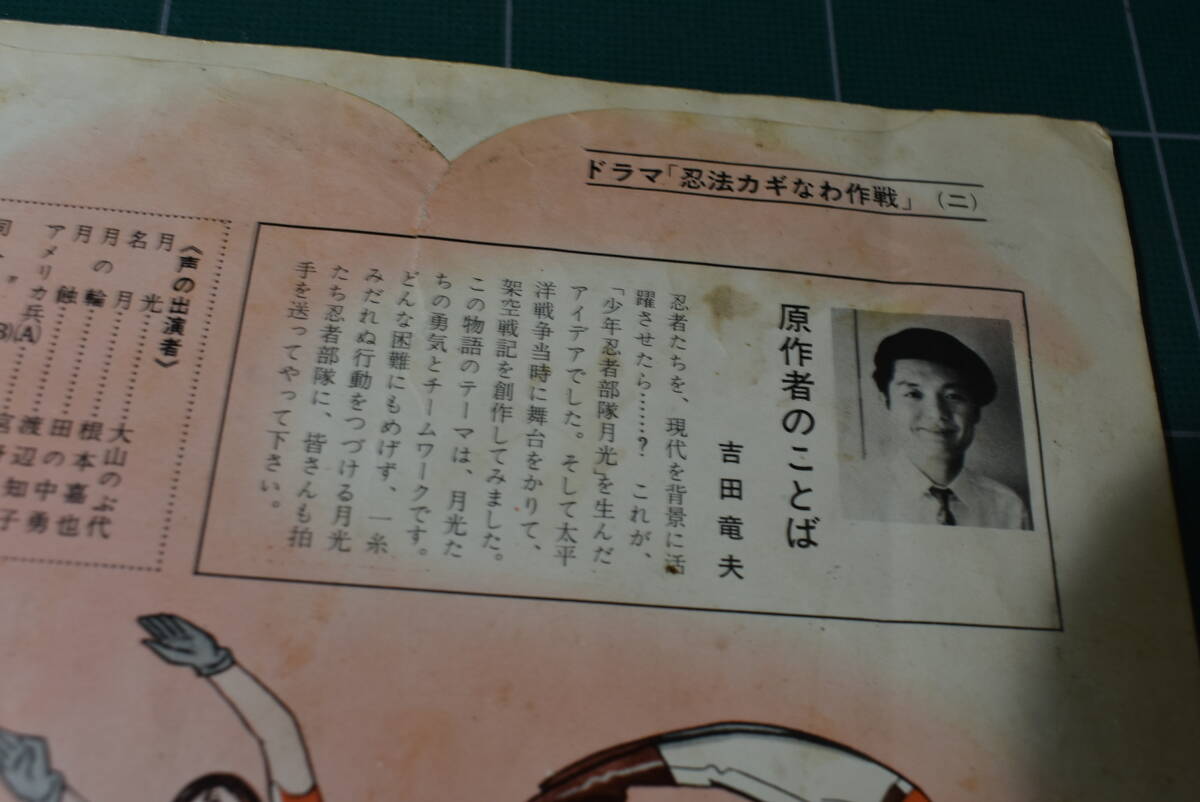 ドラマ「忍法カギなわ作戦」(二)
原作者のことば
吉田竜夫
忍者たちを、現代を背景に活
躍させたら……? これが、
「少年忍者部隊月光」を生んだ
アイデアでした。そして太平
洋戦争当時に舞台をかりて、
架空戦記を創作してみました。
この物語のテーマは、月光た
ちの勇気とチームワークです。
どんな困難にもめげず、一糸
みだれぬ行動をつづける月光
たち忍者部隊に、皆さんも拍
手を送ってやって下さい。
《声の出演者》
月光……大山のぶ代
名月……根本嘉也
月の輪……田の中勇
月蝕……渡辺知子
アメリカ兵(A)